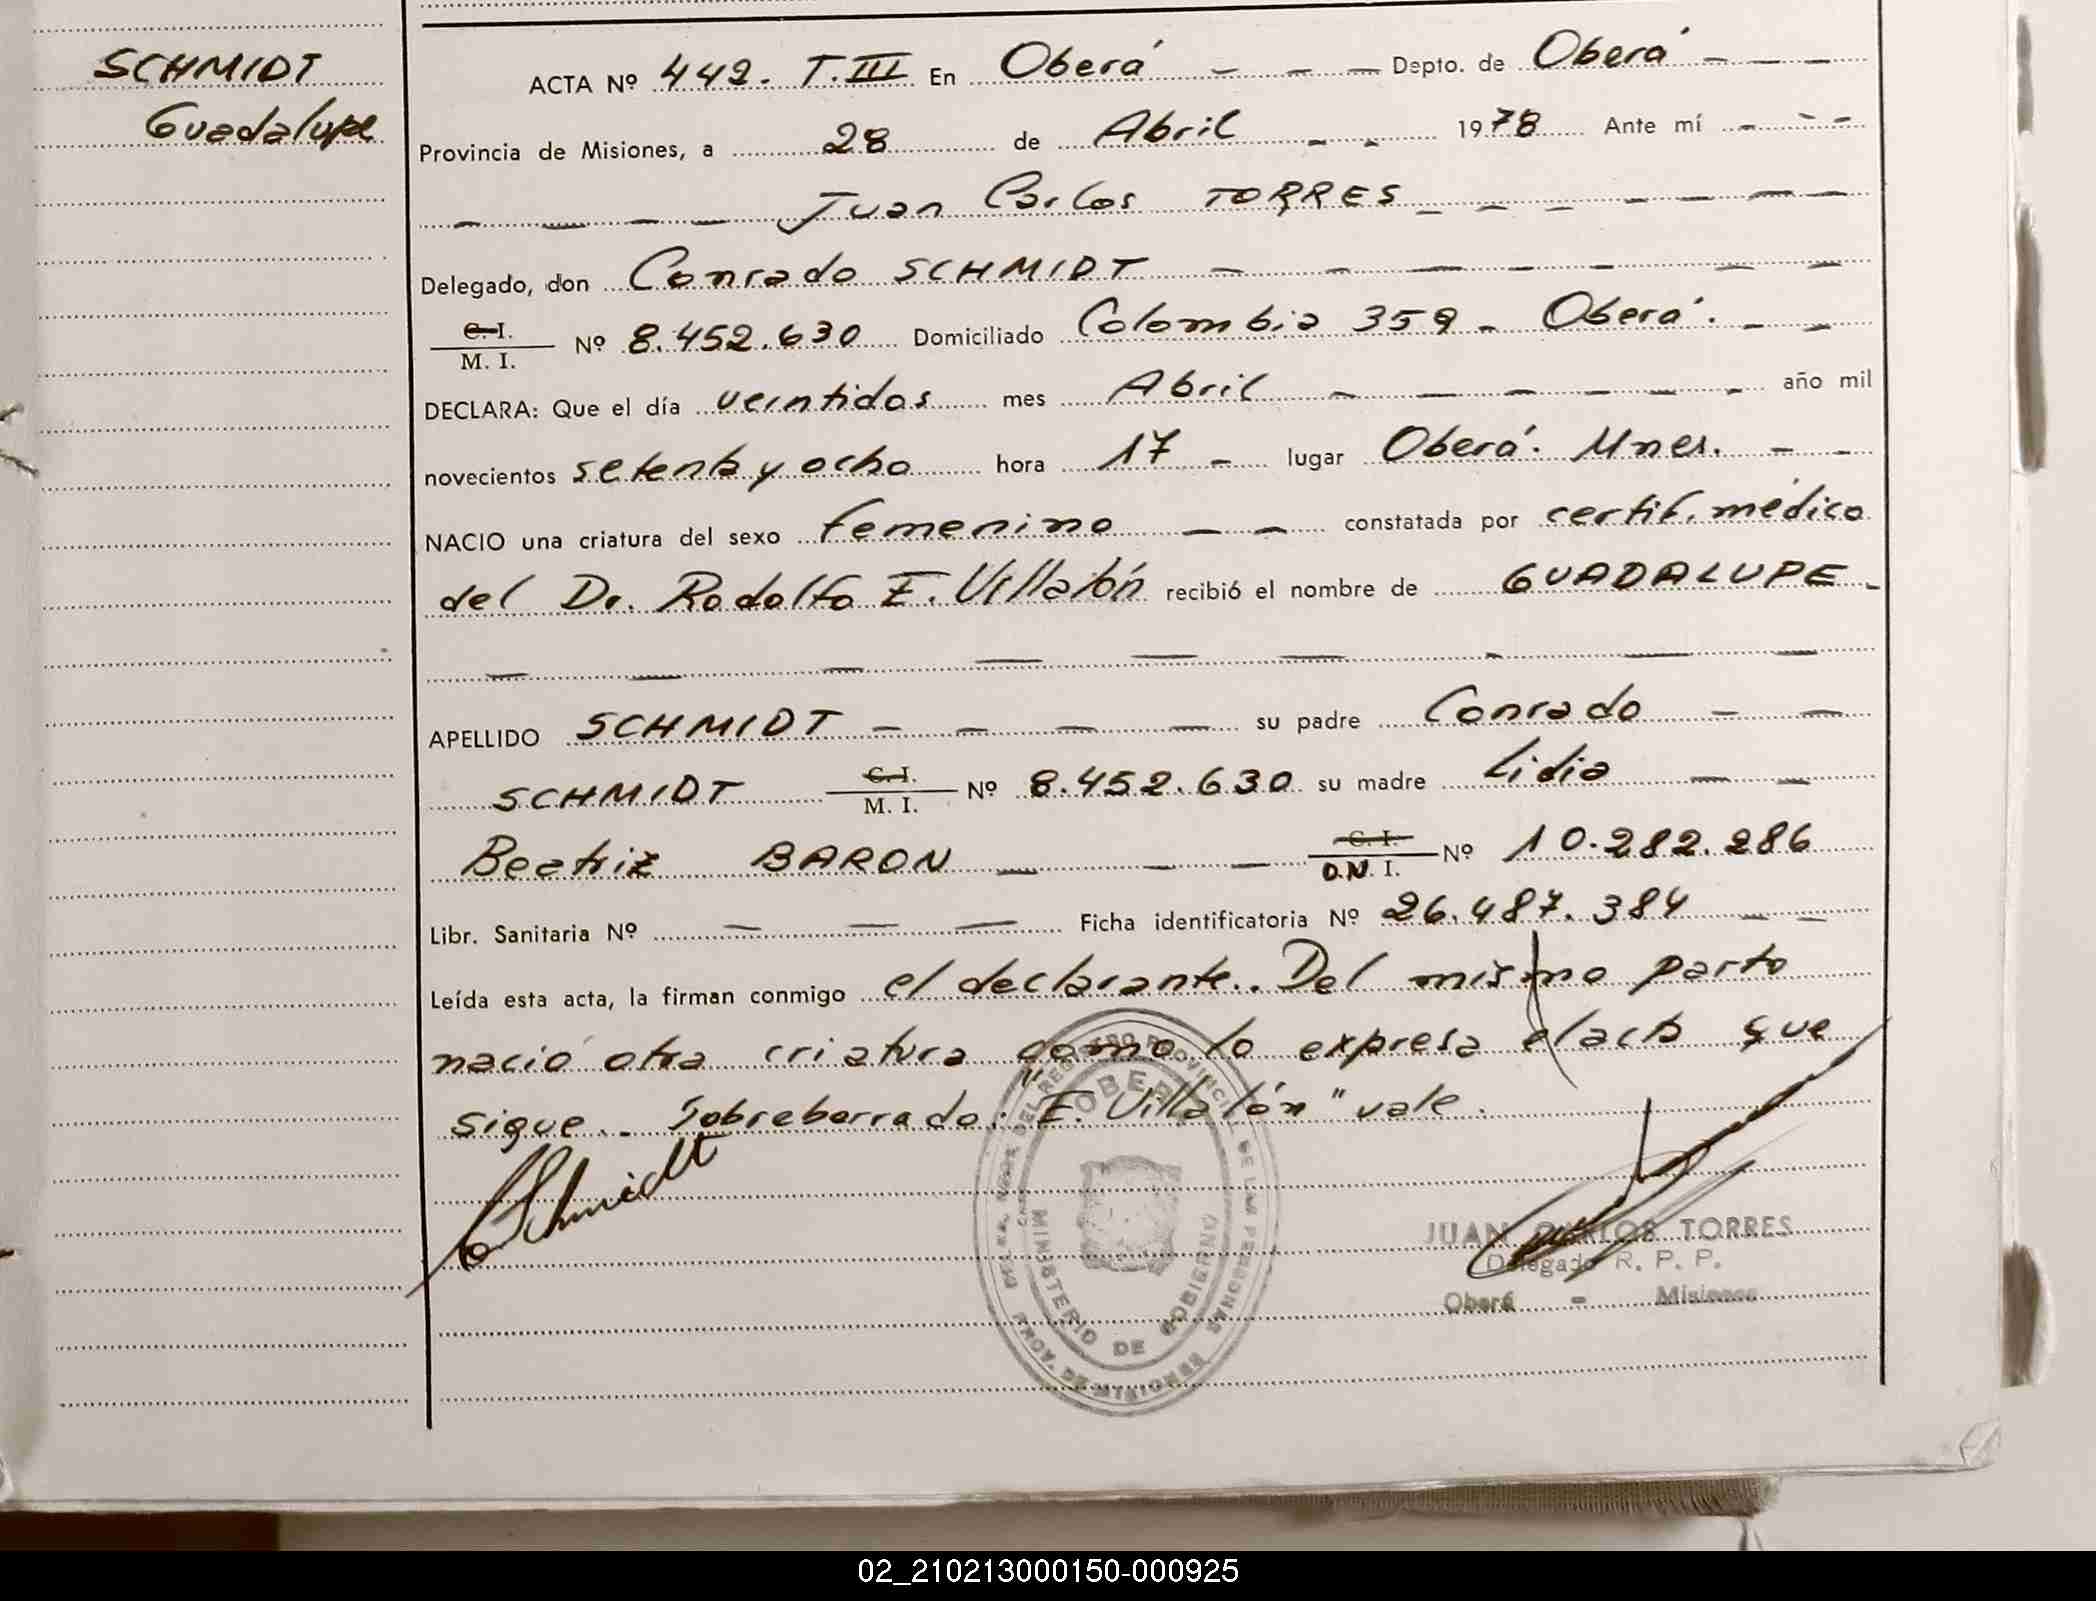 SCHMIDT
Guadalupe
ACTA Nº 442. T. III En Oberá - - - Depto. de Oberá - - -
Provincia de Misiones, a 28 de Abril - - 1978 Ante mí - - -
- - - - Juan Carlos TORRES - - - - - - -
Delegado, don Conrado SCHMIDT - - - - - - -
C. I.
M. I. Nº 8.452.630 Domiciliado Colombia 359 - Oberá. - -
DECLARA: Que el día veintidos mes Abril - - - - - - año mil
novecientos setenta y ocho hora 17 - lugar Oberá. Mnes. - -
NACIO una criatura del sexo femenino - - constatada por certif. médico
del Dr. Rodolfo E. Villalón recibió el nombre de GUADALUPE -
- - - - - - - - -
APELLIDO SCHMIDT - - - - su padre Conrado - -
SCHMIDT C. I.
M. I. Nº 8.452.630 su madre Lidia - -
Beatriz BARON - - - C. I.
D.N. I. Nº 10.282.286
Libr. Sanitaria Nº - - - Ficha identificatoria Nº 26.487.384 - -
Leída esta acta, la firman conmigo el declarante.. Del mismo parto
nació otra criatura como lo expresa el acta que
sigue.- Sobreborrado: "E. Villalón" vale.
Schmidt
OBERA
MINISTERIO DE GOBIERNO
JUAN CARLOS TORRES
Delegado R. P. P.
Oberá - Misiones
02_210213000150-000925